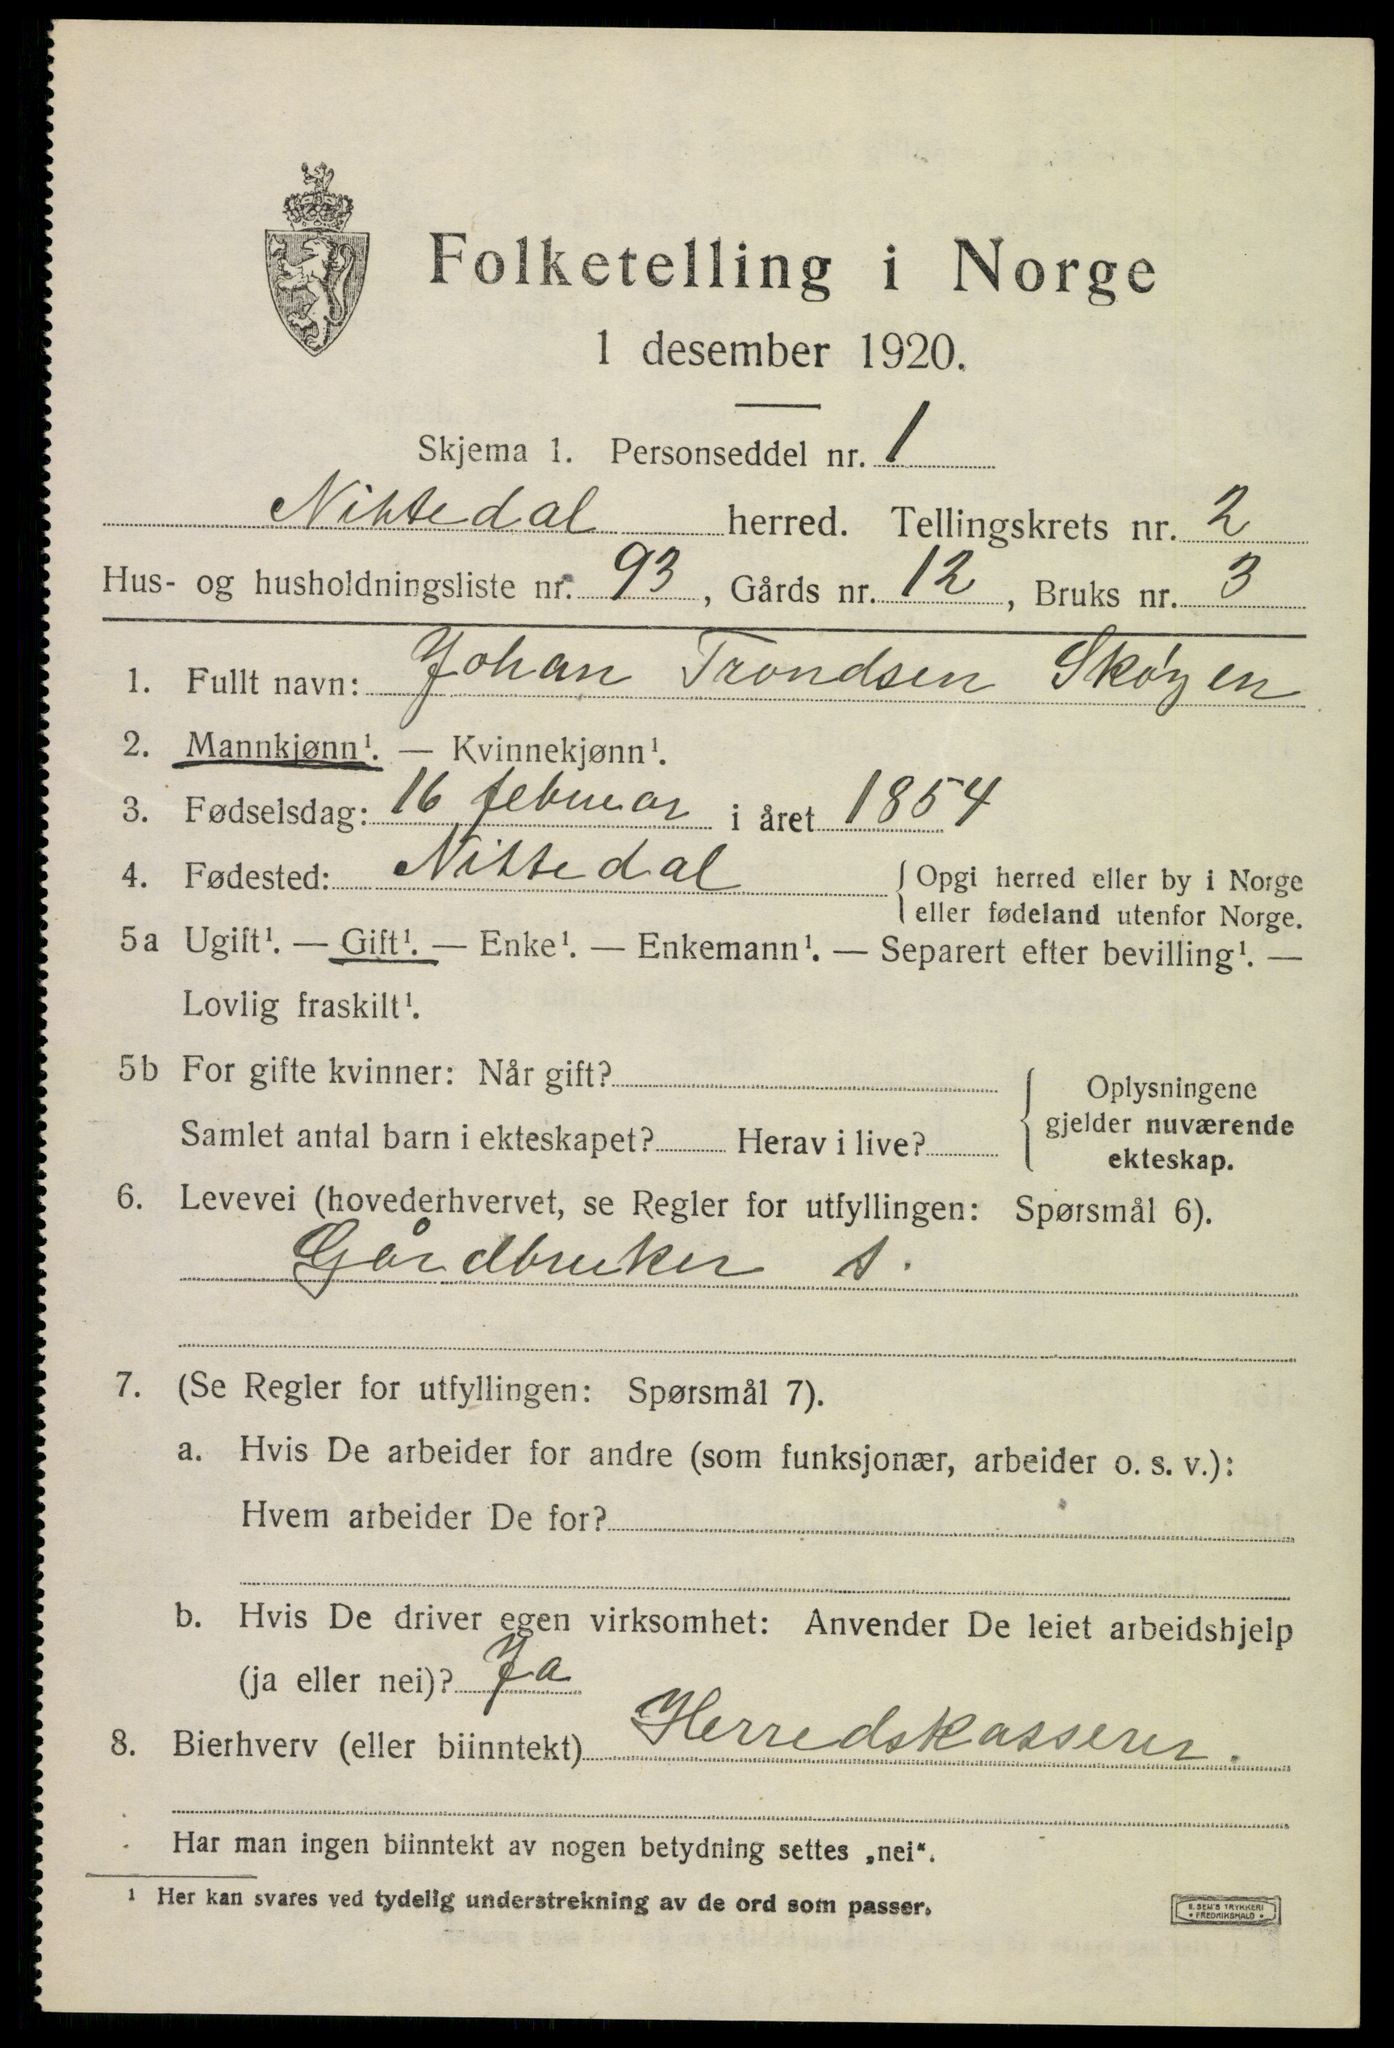 Folketelling i Norge
1 desember 1920.
Skjema 1. Personseddel nr. 1
Nittedal herred. Tellingskrets nr. 2
Hus- og husholdningsliste nr. 93, Gårds nr. 12, Bruks nr. 3
1. Fullt navn: Johan Trondsen Skøyen
2. Mannkjønn¹. — Kvinnekjønn¹.
3. Fødselsdag: 16 februar i året 1854
4. Fødested: Nittedal { Opgi herred eller by i Norge
eller fødeland utenfor Norge.
5a Ugift¹. — Gift¹. — Enke¹. — Enkemann¹. — Separert efter bevilling¹. —
Lovlig fraskilt¹.
5b For gifte kvinner: Når gift? { Oplysningene
Samlet antal barn i ekteskapet? Herav i live? gjelder nuværende
ekteskap.
6. Levevei (hovederhvervet, se Regler for utfyllingen: Spørsmål 6).
Gårdbruker s.
7. (Se Regler for utfyllingen: Spørsmål 7).
a. Hvis De arbeider for andre (som funksjonær, arbeider o. s. v.):
Hvem arbeider De for?
b. Hvis De driver egen virksomhet: Anvender De leiet arbeidshjelp
(ja eller nei)? Ja
8. Bierhverv (eller biinntekt) Herredskasserer.
Har man ingen biinntekt av nogen betydning settes „nei“.
¹ Her kan svares ved tydelig understrekning av de ord som passer.
E. SEM'S TRYKKERI
• FREDRIKSHALD •